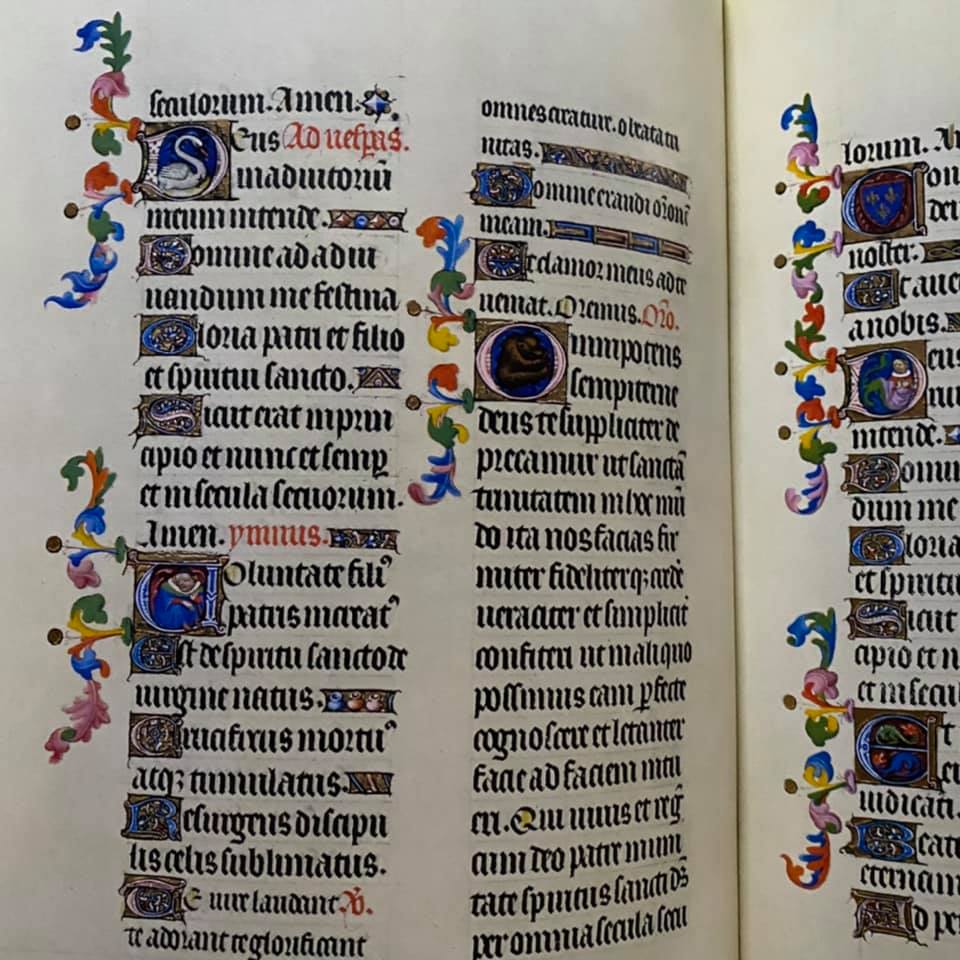 seculorum. Amen.
Deus Ad uesp̃as.
in adiutoriū
meum intende.
Domine ad adiu
uandum me festina
Gloria patri et filio
et spiritui sancto.
Sicut erat in prin
cipio et nunc et semp
et in secula secuorum.
Amen. ymnus.
Uoluntate filiꝰ
patris increatꝰ
Est de spiritu sancto de
uirgine natus.
Crucifixus mortuꝰ
atqꝫ tumulatus.
Resurgens discipu
lis celis sublimatus.
TE iure laudant
te adorant te glorificant
omnes creature. o beata tri
nitas.
Domine exaudi oronē
meam.
Et clamor meus ad te
ueniat. Oremus. Oro.
Omnipotens
sempiterne
deus te suppliciter de
precamur ut sanctā
trinitatem in hoc mū
do ita nos facias fir
miter fideliterqꝫ credē
ueraciter et simplicit̃
confiteri ut in aliquo
possimus eam ꝑfecte
cognoscere et letanter
facie ad faciem intu
eri. Qui uiuis et reg̃
cum deo patre in uni
tate spiritus sancti ds̃
per omnia secula secu
lorum.
noster.
Et
a nobis.
intende.
dum me
Gloria
et spiritu
Sicut
cipio et n
et in secul
iudicati.
Beat
eternam
Ad pe